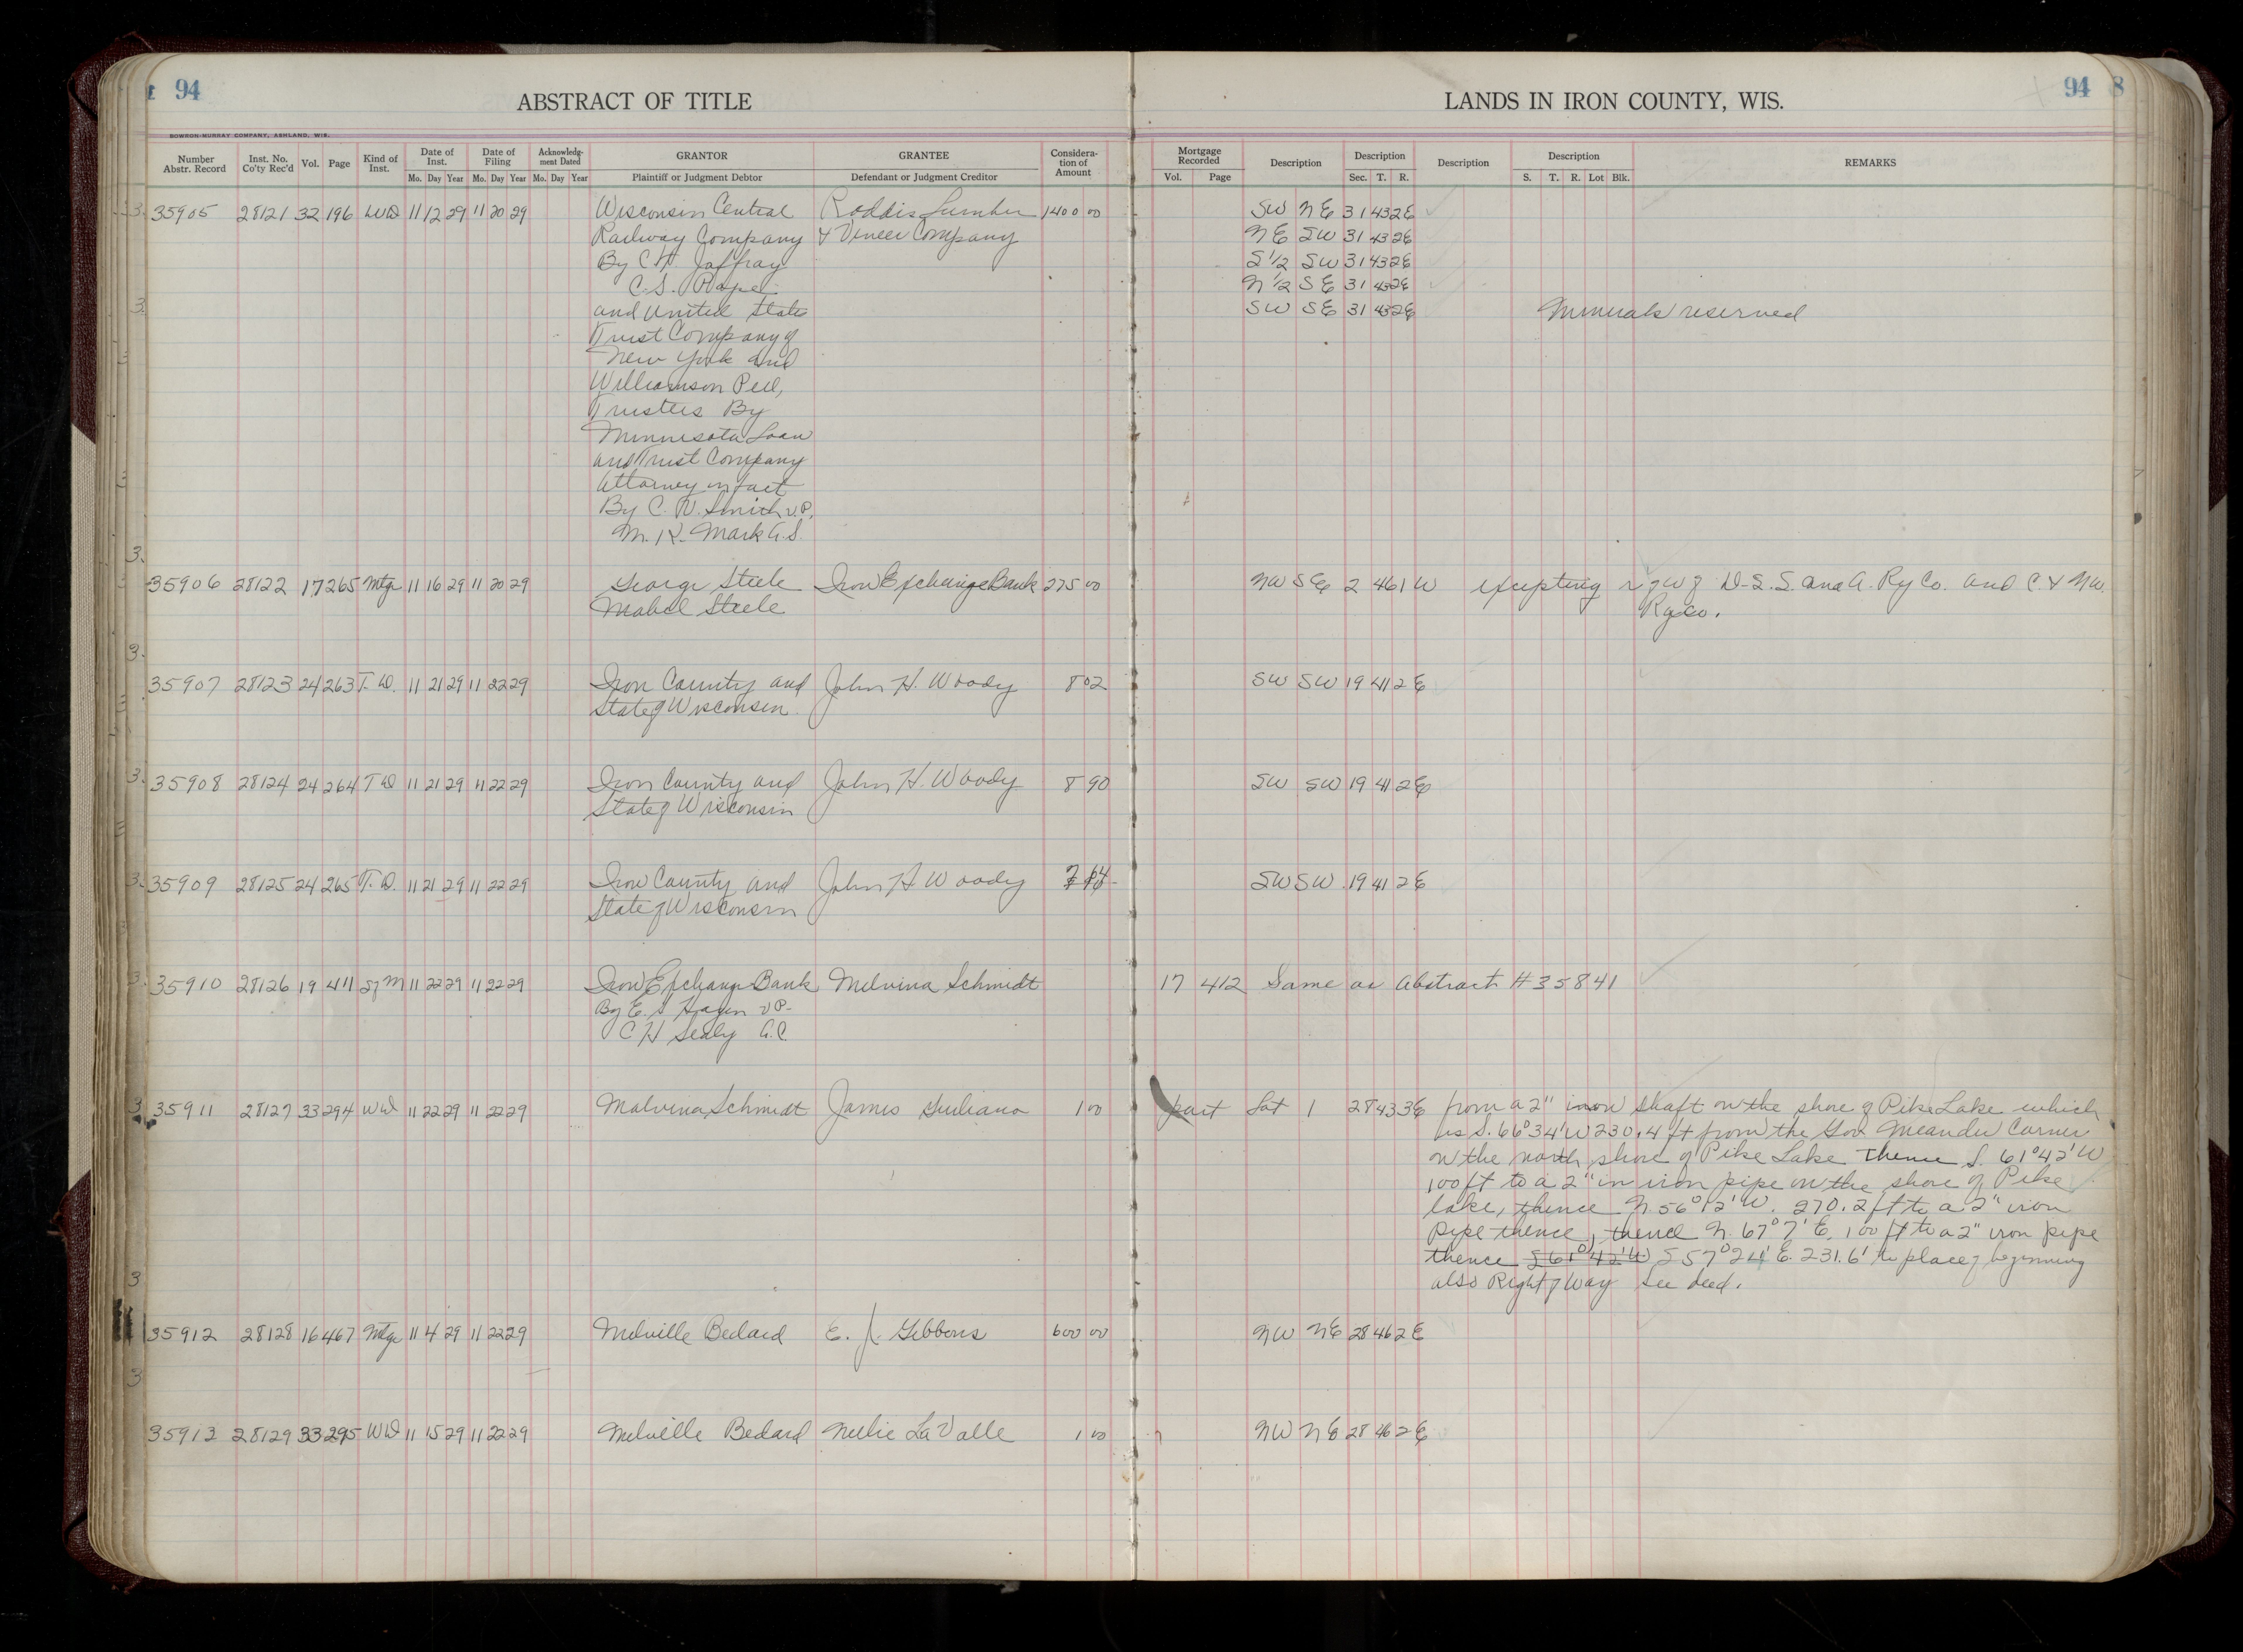 94
ABSTRACT OF TITLE
LANDS IN IRON COUNTY, WIS.
94 8
BOWRON-MURRAY COMPANY, ASHLAND, WIS.
Number Abstr. Record Inst. No. Co'ty Rec'd Vol. Page Kind of Inst. Date of Inst. Mo. Day Year Date of Filing Mo. Day Year Acknowledgment Dated Mo. Day Year GRANTOR Plaintiff or Judgment Debtor GRANTEE Defendant or Judgment Creditor Considera-tion of Amount Mortgage Recorded Vol. Page Description Description Sec. T. R. Description Description S. T. R. Lot Blk. REMARKS
35905 28121 32 196 WD 11 12 29 11 20 29 Wisconsin Central Roddis Lumber 1400 00 SW NE 31 43 2E
Railway Company & Veneer Company NE SW 31 43 2E
By C.T. Jaffray S1/2 SW 31 43 2E
C.S. N1/2 SE 31 43 2E
and United States SW SE 31 43 2E Minerals reserved
Trust Company of
New York and
Williamson Pell,
Trustees By
Minnesota Loan
and Trust Company
Attorney in fact
By C. W. Smith V.P.
M. K. Mark A.S.
35906 28122 17 265 Mtge 11 16 29 11 20 29 George Steele Iron Exchange Bank 275 00 NW SE 2 46 1W excepting r of w of D.S.S. and A. Ry Co. and C. & N.W.
Mabel Steele Ry Co.
35907 28123 24 263 T.D. 11 21 29 11 22 29 Iron County and John H. Woody 8 02 SW SW 19 41 2E
State of Wisconsin
35908 28124 24 264 TD 11 21 29 11 22 29 Iron County and John H. Woody 8 90 SW SW 19 41 2E
State of Wisconsin
35909 28125 24 265 T.D. 11 21 29 11 22 29 Iron County and John H Woody SW SW 19 41 2E
State of Wisconsin
35910 28126 19 411 S of M 11 22 29 11 22 29 Iron Exchange Bank Melvina Schmidt 17 412 Same as Abstract #35841
By E. S Hagen VP-
C H Sealy A.C
35911 28127 33 294 WD 11 22 29 11 22 29 Malvina Schmidt James Guiliano 1 00 part Lot 1 28 43 3E from a 2" iron shaft on the shore of Pike Lake which
is S. 66°34'W 230.4 ft from the Gov. Meander Corner
on the north shore of Pike Lake Thence S. 61°42'W
100 ft to a 2" in iron pipe on the shore of Pike
lake, thence N. 56°12'W. 270.2 ft to a 2" iron
pipe thence, thence N. 67°7'E, 100 ft to a 2" iron pipe
thence S61°42'W S57°24'E. 231.6' to place of beginning
also Right of Way See deed.
35912 28128 16 467 Mtge 11 4 29 11 22 29 Melville Bedard E. J. Gibbons 600 00 NW NE 28 46 2E
35913 28129 33 295 WD 11 15 29 11 22 29 Melville Bedard Nelie La Valle 1 00 NW NE 28 46 2E